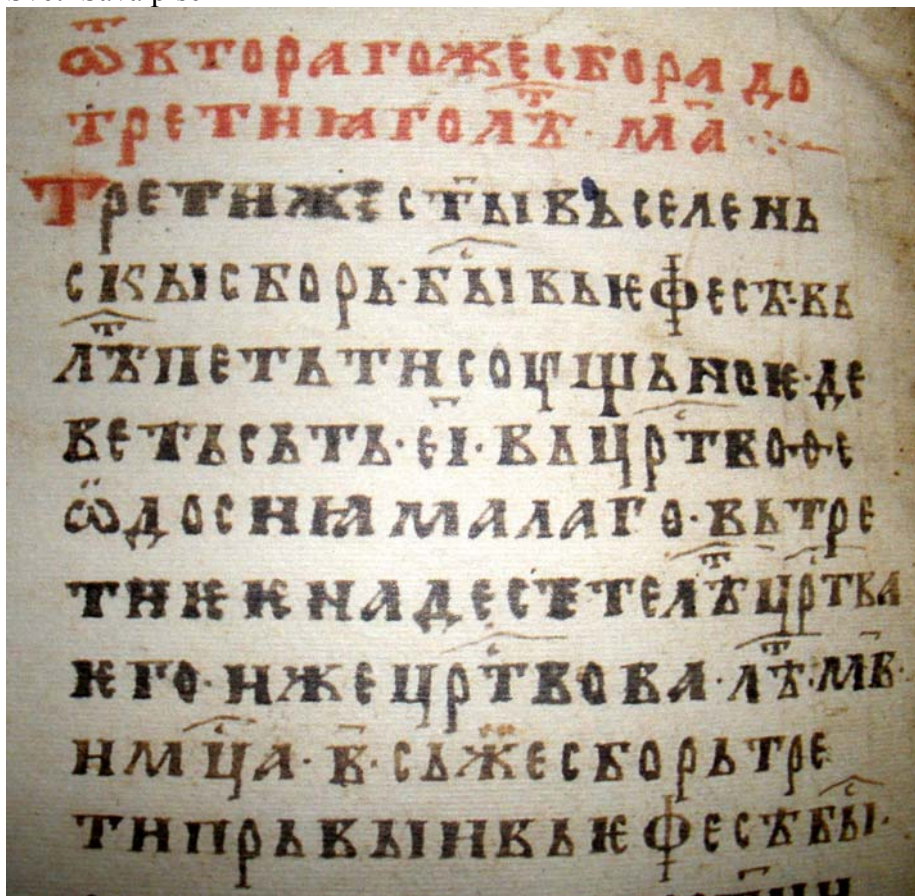 ѿвторагожесбора до
третиꙗголѣⷮ· м҃а ·:·
Третиже ст҃ывьселень
скысборь·быⷭ҇вьѥфесѣ·вь
лѣⷮпетьтисоущьноѥ·де
ветьсьть·е҃і·вьцрⷭ҇тво·ѳе
ѡ̈досиꙗмалаго·вьтре
тиѥѥнадесетелѣⷮцрⷭ҇тва
ѥго·ижецрⷭ҇твова·лѣⷮ·м҃в·
имцⷭ҇а·в҃·сьжесборьтре
типрьвыивьѥфесѣбыⷭ҇·